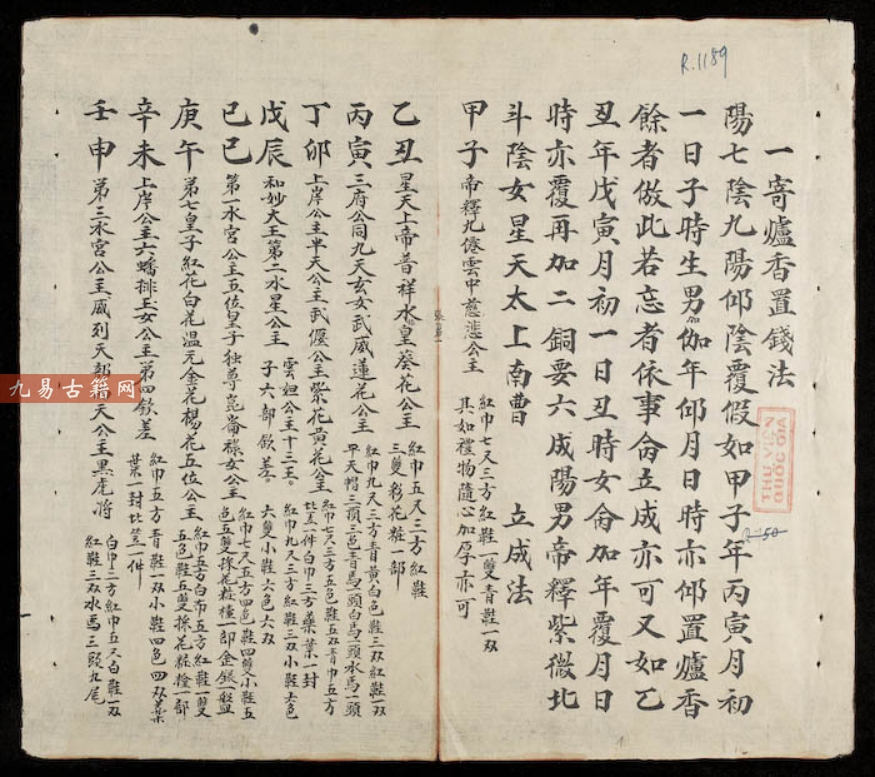 R.1189
一寄爐香置錢法
陽七陰九陽仰陰覆假如甲子年丙寅月初
一日子時生男伽伽年仰月日時亦仰置爐香
餘者倣此若忘者依事侖立成亦可又如乙
丑年戊寅月初一日丑時女侖加年覆月日
時亦覆再加二銅要六成陽男帝釋紫微北
斗陰女星天太上南曹 立成法
甲子帝釋九僊雲中慈悲公主 紅巾七尺三方紅鞋一雙青鞋一双
其如禮物隨心加厚亦可
乙丑星天上帝普祥水皇葵花公主 紅巾五尺三方紅鞋
三雙彩花粧一部
丙寅三府公同九天玄女武威蓮花公主 紅巾九尺三方青黃白色鞋三双紅鞋一双
平天帽三頂三色青馬一頭白馬一頭水馬一頭
丁卯上岸公主半天公主武偃公主紫花黃花公主 紅巾七尺三方五色鞋五双青巾五方
笠一件白巾三方藥葉一封
戊辰和妙大王第二水星公主 雲妲公主十三王。
子六部欽差。 紅巾九尺三方紅鞋三双小鞋六色
六雙小鞋六色六双
己巳第一水宮公主五位皇子独尊崑崙祿女公主 紅巾七尺五方四色鞋四雙小鞋五
色五雙採花粧檯一部金銀一盤
庚午第七皇子紅花白花溫元金花楊花五位公主 紅巾五方白布五方紅鞋一雙
五色鞋五雙採花粧檯一部
辛未上岸公主六蟠排玉女公主第四欽差 紅巾五方青鞋一双小鞋四色四双藥
葉一封笠一件
壬申第三水宮公主威列天部天公主黑虎將 白巾二方紅巾五尺白鞋一双
紅鞋三双水馬三頭九尾
九易古籍网
THƯ VIỆN
QUỐC GIA